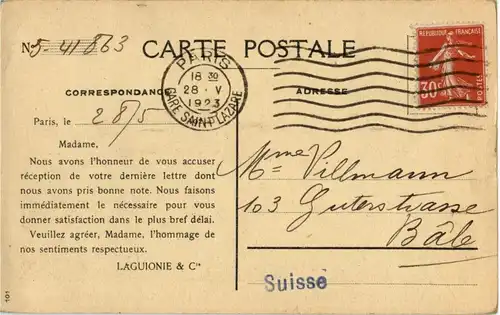 N° 5-41863
CARTE POSTALE
PARIS
18 30
28 · V
1923
GARE SAINT-LAZARE
REPUBLIQUE FRANÇAISE
30c
POSTES
CORRESPONDANCE
ADRESSE
Paris, le 28/5
Madame,
Nous avons l'honneur de vous accuser
réception de votre dernière lettre dont
nous avons pris bonne note. Nous faisons
immédiatement le nécessaire pour vous
donner satisfaction dans le plus bref délai.
Veuillez agréer, Madame, l'hommage de
nos sentiments respectueux.
LAGUIONIE & Cie
Mme Villmann
103 Guterstrasse
Bâle
Suisse
101